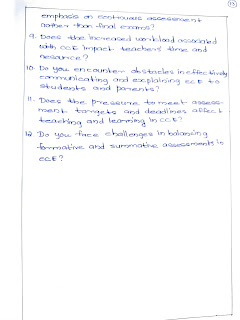 emphasis on continuous assessment
rather than final exams?
9. Does the increased workload associated
with CCE impact teachers' time and
resource?
10. Do you encounter obstacles in effectively
communicating and explaining CCE to
students and parents?
11. Does the pressure to meet assess-
ment targets and deadlines affect
teaching and learning in CCE?
12. Do you face challenges in balancing
formative and summative assessments in
CCE?